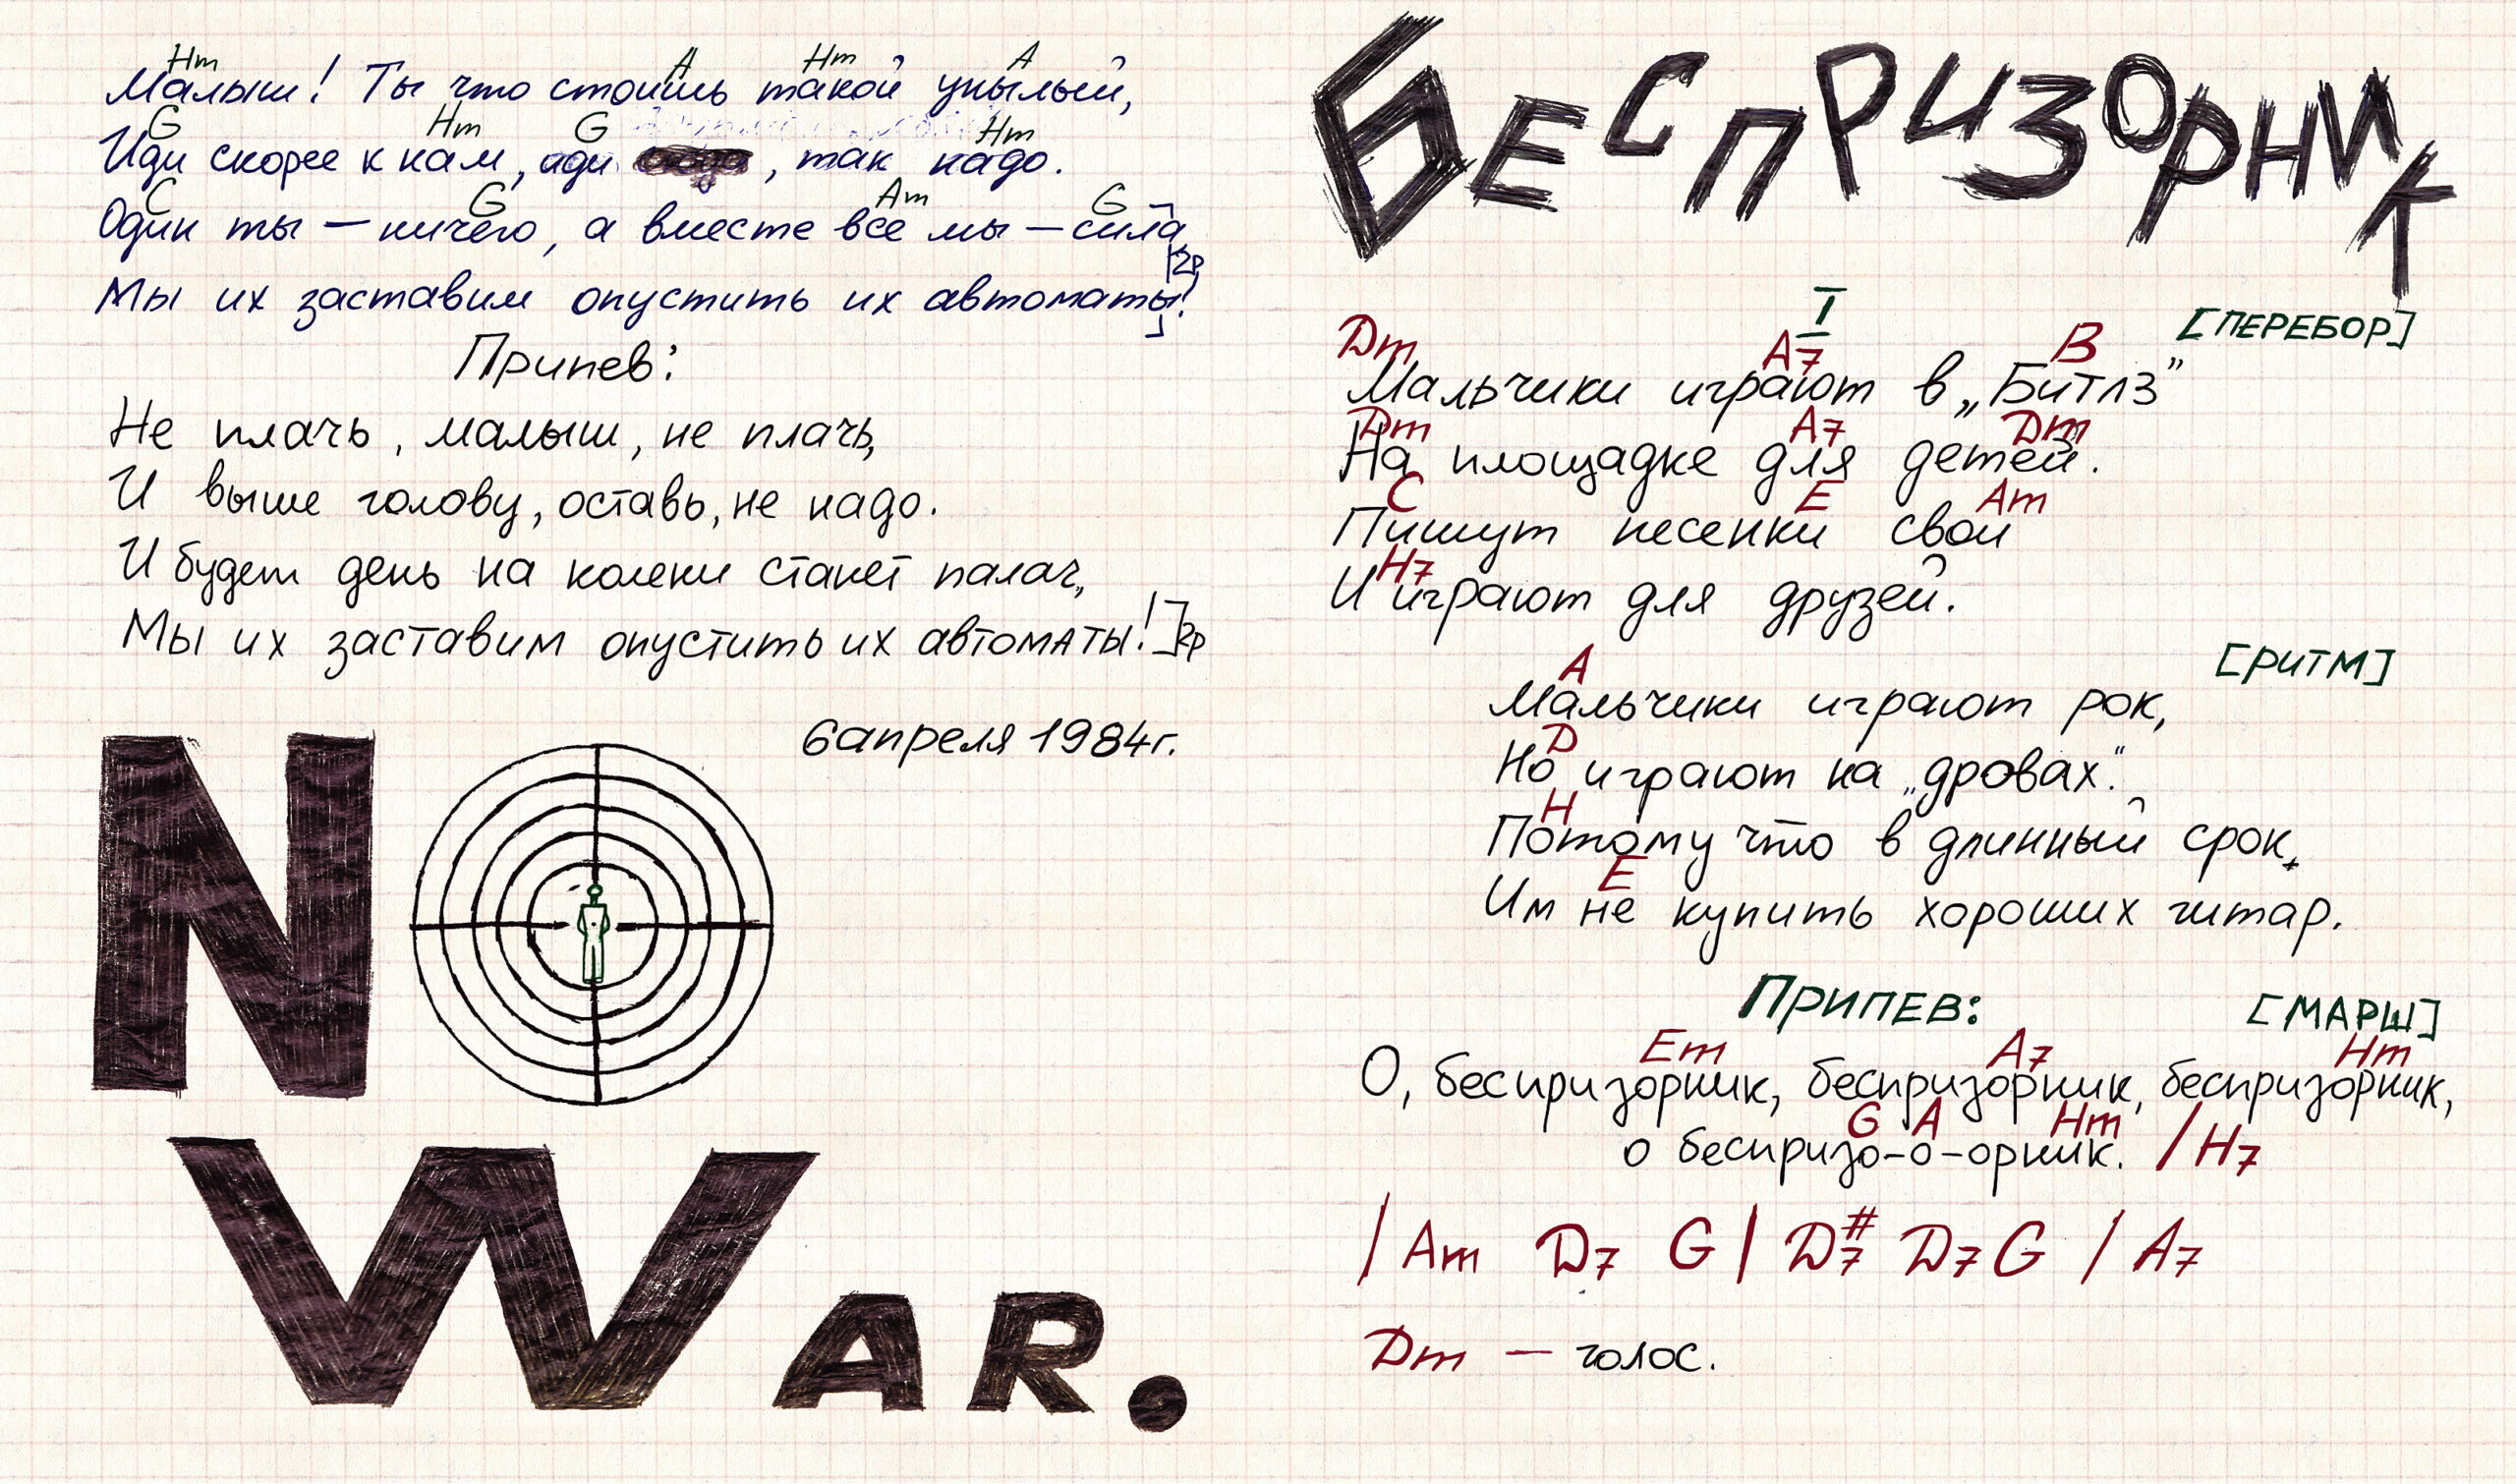 Hm A Hm A
Малыш! Ты что стоишь такой унылый,
G Hm G Hm
Иди скорее к нам, иди , так надо.
C G Am G
Один ты — ничего, а вместе все мы — сила
2р
Мы их заставим опустить их автоматы!
Припев:
Не плачь, малыш, не плачь,
И выше голову, оставь, не надо.
И будет день на колени станет палач,
Мы их заставим опустить их автоматы!] 2р
6 апреля 1984г.
NO
WAR.
БЕСПРИЗОРНИК
I
[ПЕРЕБОР]
Dm A7 B
Мальчики играют в „Битлз”
Dm A7 Dm
На площадке для детей.
C E Am
Пишут песенки свои
H7
И играют для друзей.
[РИТМ]
A
Мальчики играют рок,
D
Но играют на „дровах“.
H
Потому что в длинный срок,
E
Им не купить хороших гитар.
ПРИПЕВ: [МАРШ]
Em A7 Hm
О, беспризорник, беспризорник, беспризорник,
G A Hm / H7
о беспризо-о-орник.
/ Am D7 G / D#7 D7 G / A7
Dm — голос.